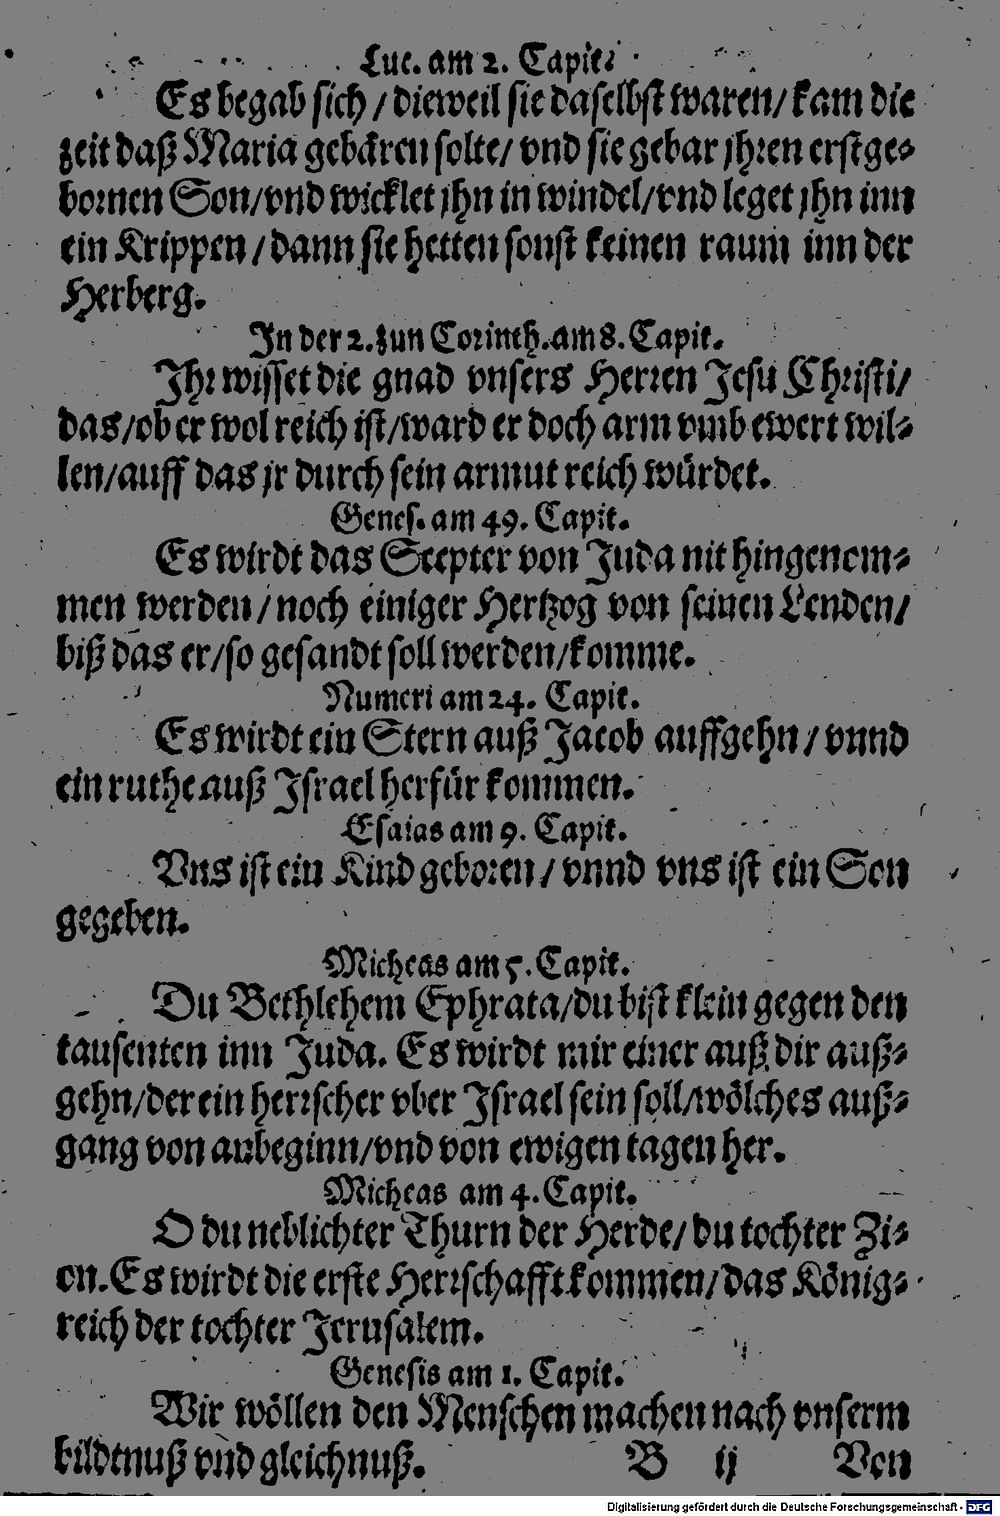 Luc. am 2. Capit.
Es begab sich / dieweil sie daselbst waren / kam die
zeit daß Maria gebären solte / vnd sie gebar jhren erstge-
bornen Son / vnd wicklet jhn in windel / vnd leget jhn inn
ein Krippen / dann sie hetten sonst keinen raum inn der
Herberg.
In der 2. zun Corinth. am 8. Capit.
Ihr wisset die gnad vnsers Herren Jesu Christi /
das / ob er wol reich ist / ward er doch arm vmb ewert wil-
len / auff das jr durch sein armut reich würdet.
Genes. am 49. Capit.
Es wirdt das Scepter von Juda nit hingenom-
men werden / noch einiger Hertzog von seinen Lenden /
biß das er / so gesandt soll werden / komme.
Numeri am 24. Capit.
Es wirdt ein Stern auß Jacob auffgehn / vnnd
ein ruthe auß Israel herfür kommen.
Esaias am 9. Capit.
Vns ist ein Kind geboren / vnnd vns ist ein Son
gegeben.
Micheas am 5. Capit.
Du Bethlehem Ephrata / du bist klein gegen den
tausenten inn Juda. Es wirdt mir einer auß dir auß-
gehn / der ein herrscher vber Israel sein soll / wölches auß-
gang von anbeginn / vnd von ewigen tagen her.
Micheas am 4. Capit.
O du neblichter Thurn der Herde / du tochter Zi-
on. Es wirdt die erste Herrschafft kommen / das König-
reich der tochter Jerusalem.
Genesis am 1. Capit.
Wir wöllen den Menschen machen nach vnserm
bildtnuß vnd gleichnuß.
B ij Von
Digitalisierung gefördert durch die Deutsche Forschungsgemeinschaft - DFG